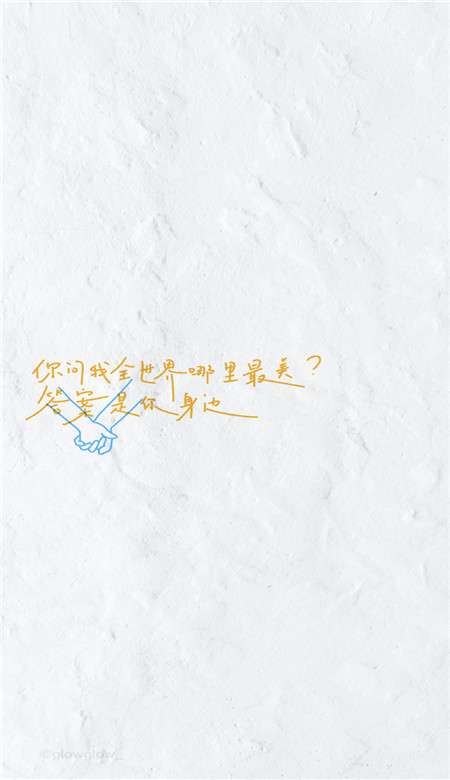 你问我全世界哪里最美？
答案是你身边
©glowglow_